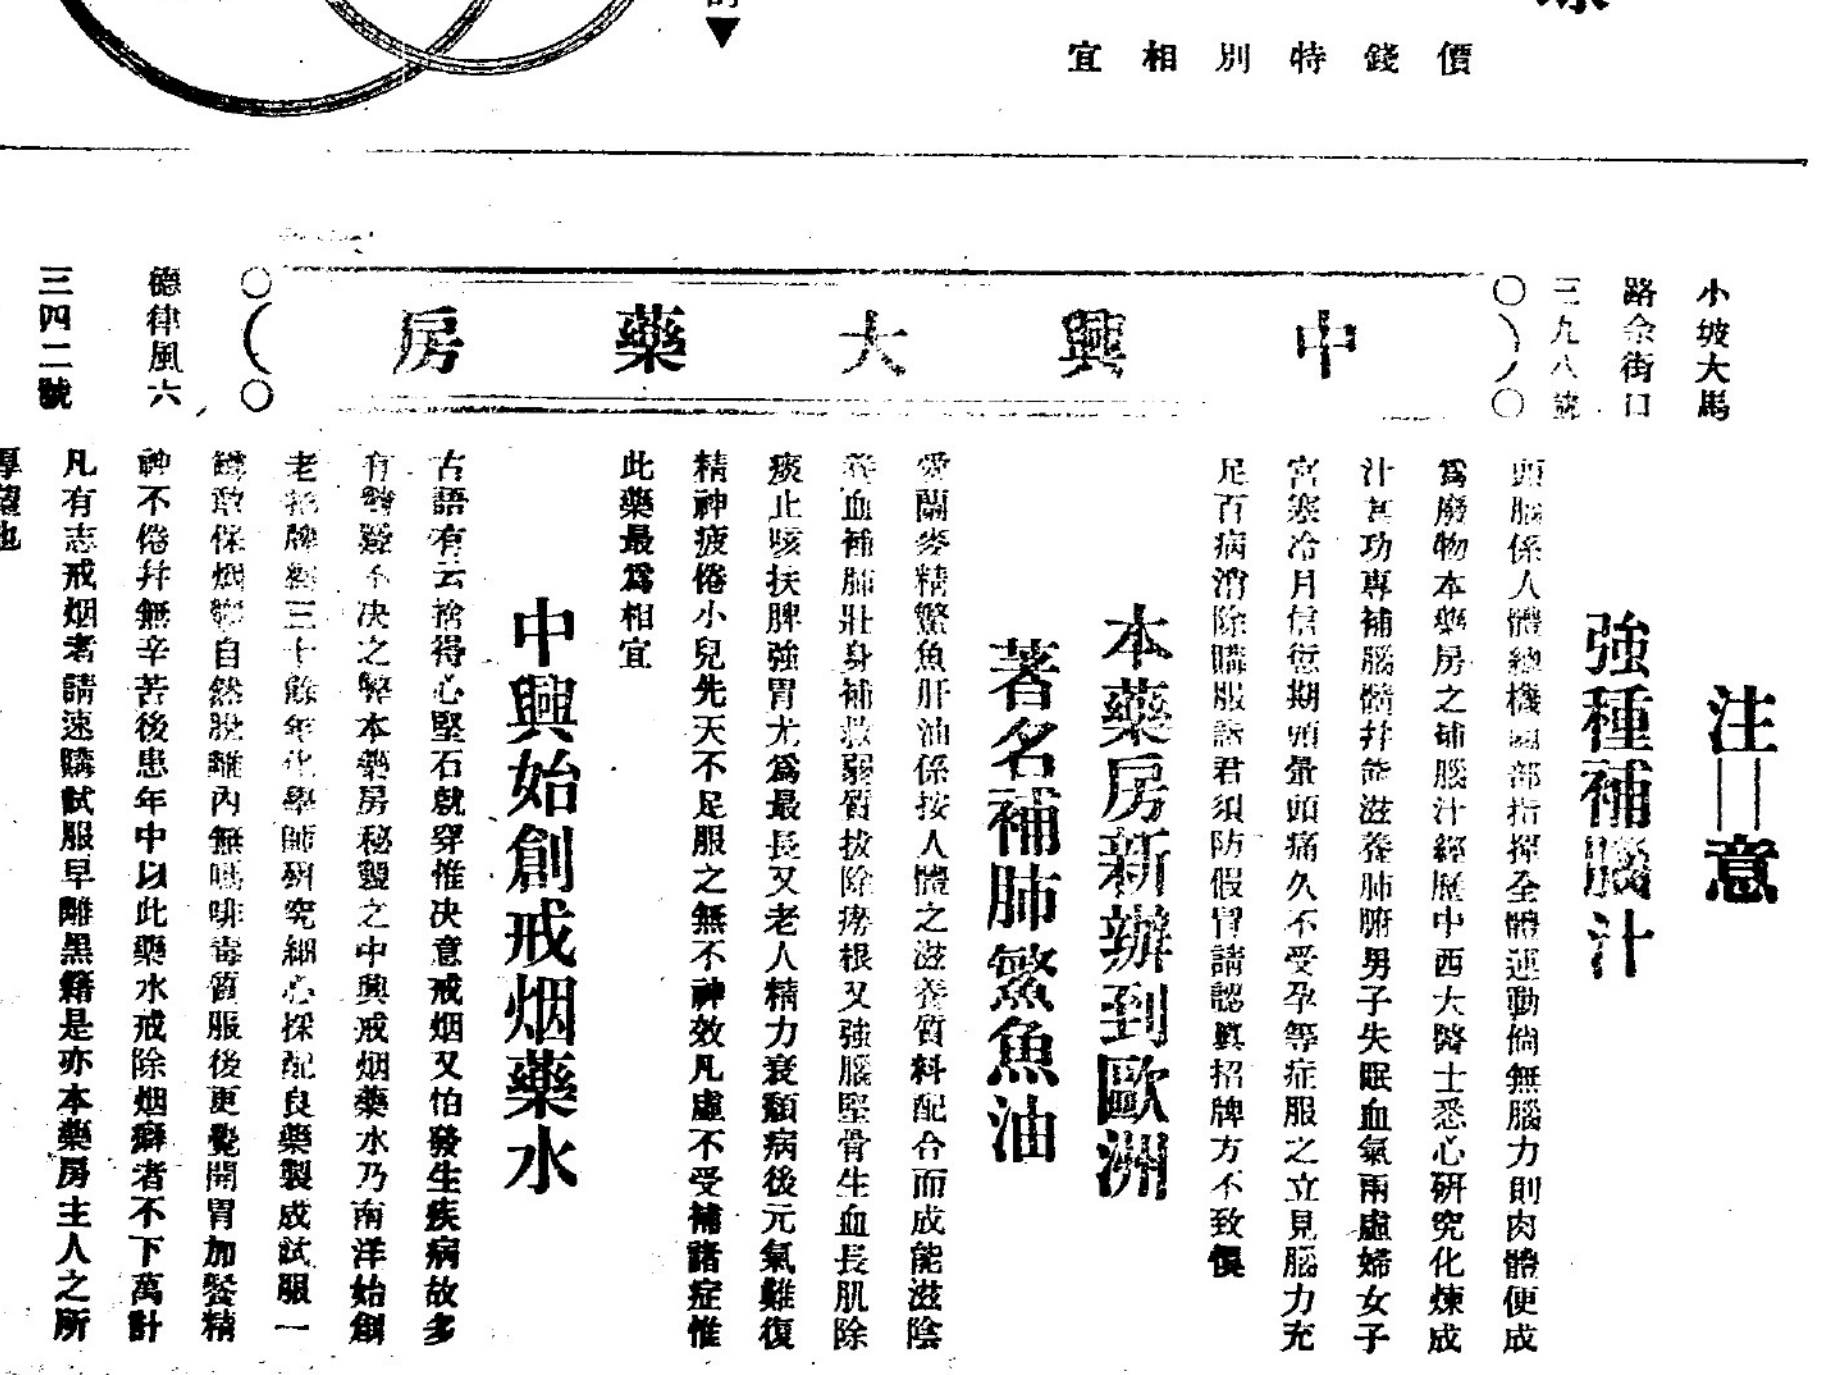 價錢特別相宜
小坡大馬
路余街口
三九八號
中興大藥房
德律風六
三四二號
注意
強種補腦汁
頭腦係人體總機關部指揮全體運動倘無腦力則肉體便成
爲廢物本藥房之補腦汁經歷中西大醫士悉心研究化煉成
汁其功專補腦髓并能滋養肺腑男子失眠血氣兩虛婦女子
宮寒冷月信愆期頭暈頭痛久不受孕等症服之立見腦力充
足百病消除購服諸君須防假冒請認眞招牌方不致悞
本藥房新辦到歐洲
著名補肺鰵魚油
愛蘭麥精鰵魚肝油係按人體之滋養質料配合而成能滋陰
養血補肺壯身補救弱質拔除癆根又強腦堅骨生血長肌除
痰止咳扶脾強胃尤爲最長又老人精力衰頹病後元氣難復
精神疲倦小兒先天不足服之無不神效凡虛不受補諸症惟
此藥最爲相宜
中興始創戒烟藥水
古語有云捨得心堅石就穿惟决意戒烟又怕發生疾病故多
有躊躇不决之弊本藥房秘製之中興戒烟藥水乃南洋始創
老招牌經三十餘年化學師硏究細心採配良藥製成試服一
罇敢保烟癖自然脫離內無嗎啡毒質服後更覺開胃加餐精
神不倦并無辛苦後患年中以此藥水戒除烟癖者不下萬計
凡有志戒烟者請速購試服早離黑籍是亦本藥房主人之所
厚望也